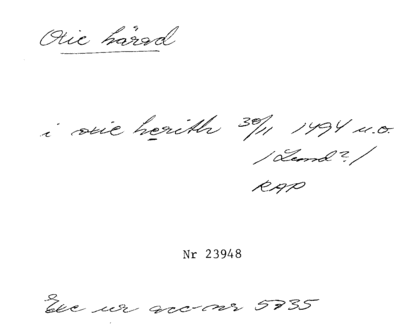 Oxie härad
i oxie herith 30/11 1494 u.o.
/Lund?/
RAP
Nr 23948
Exc ur acc-nr 5735